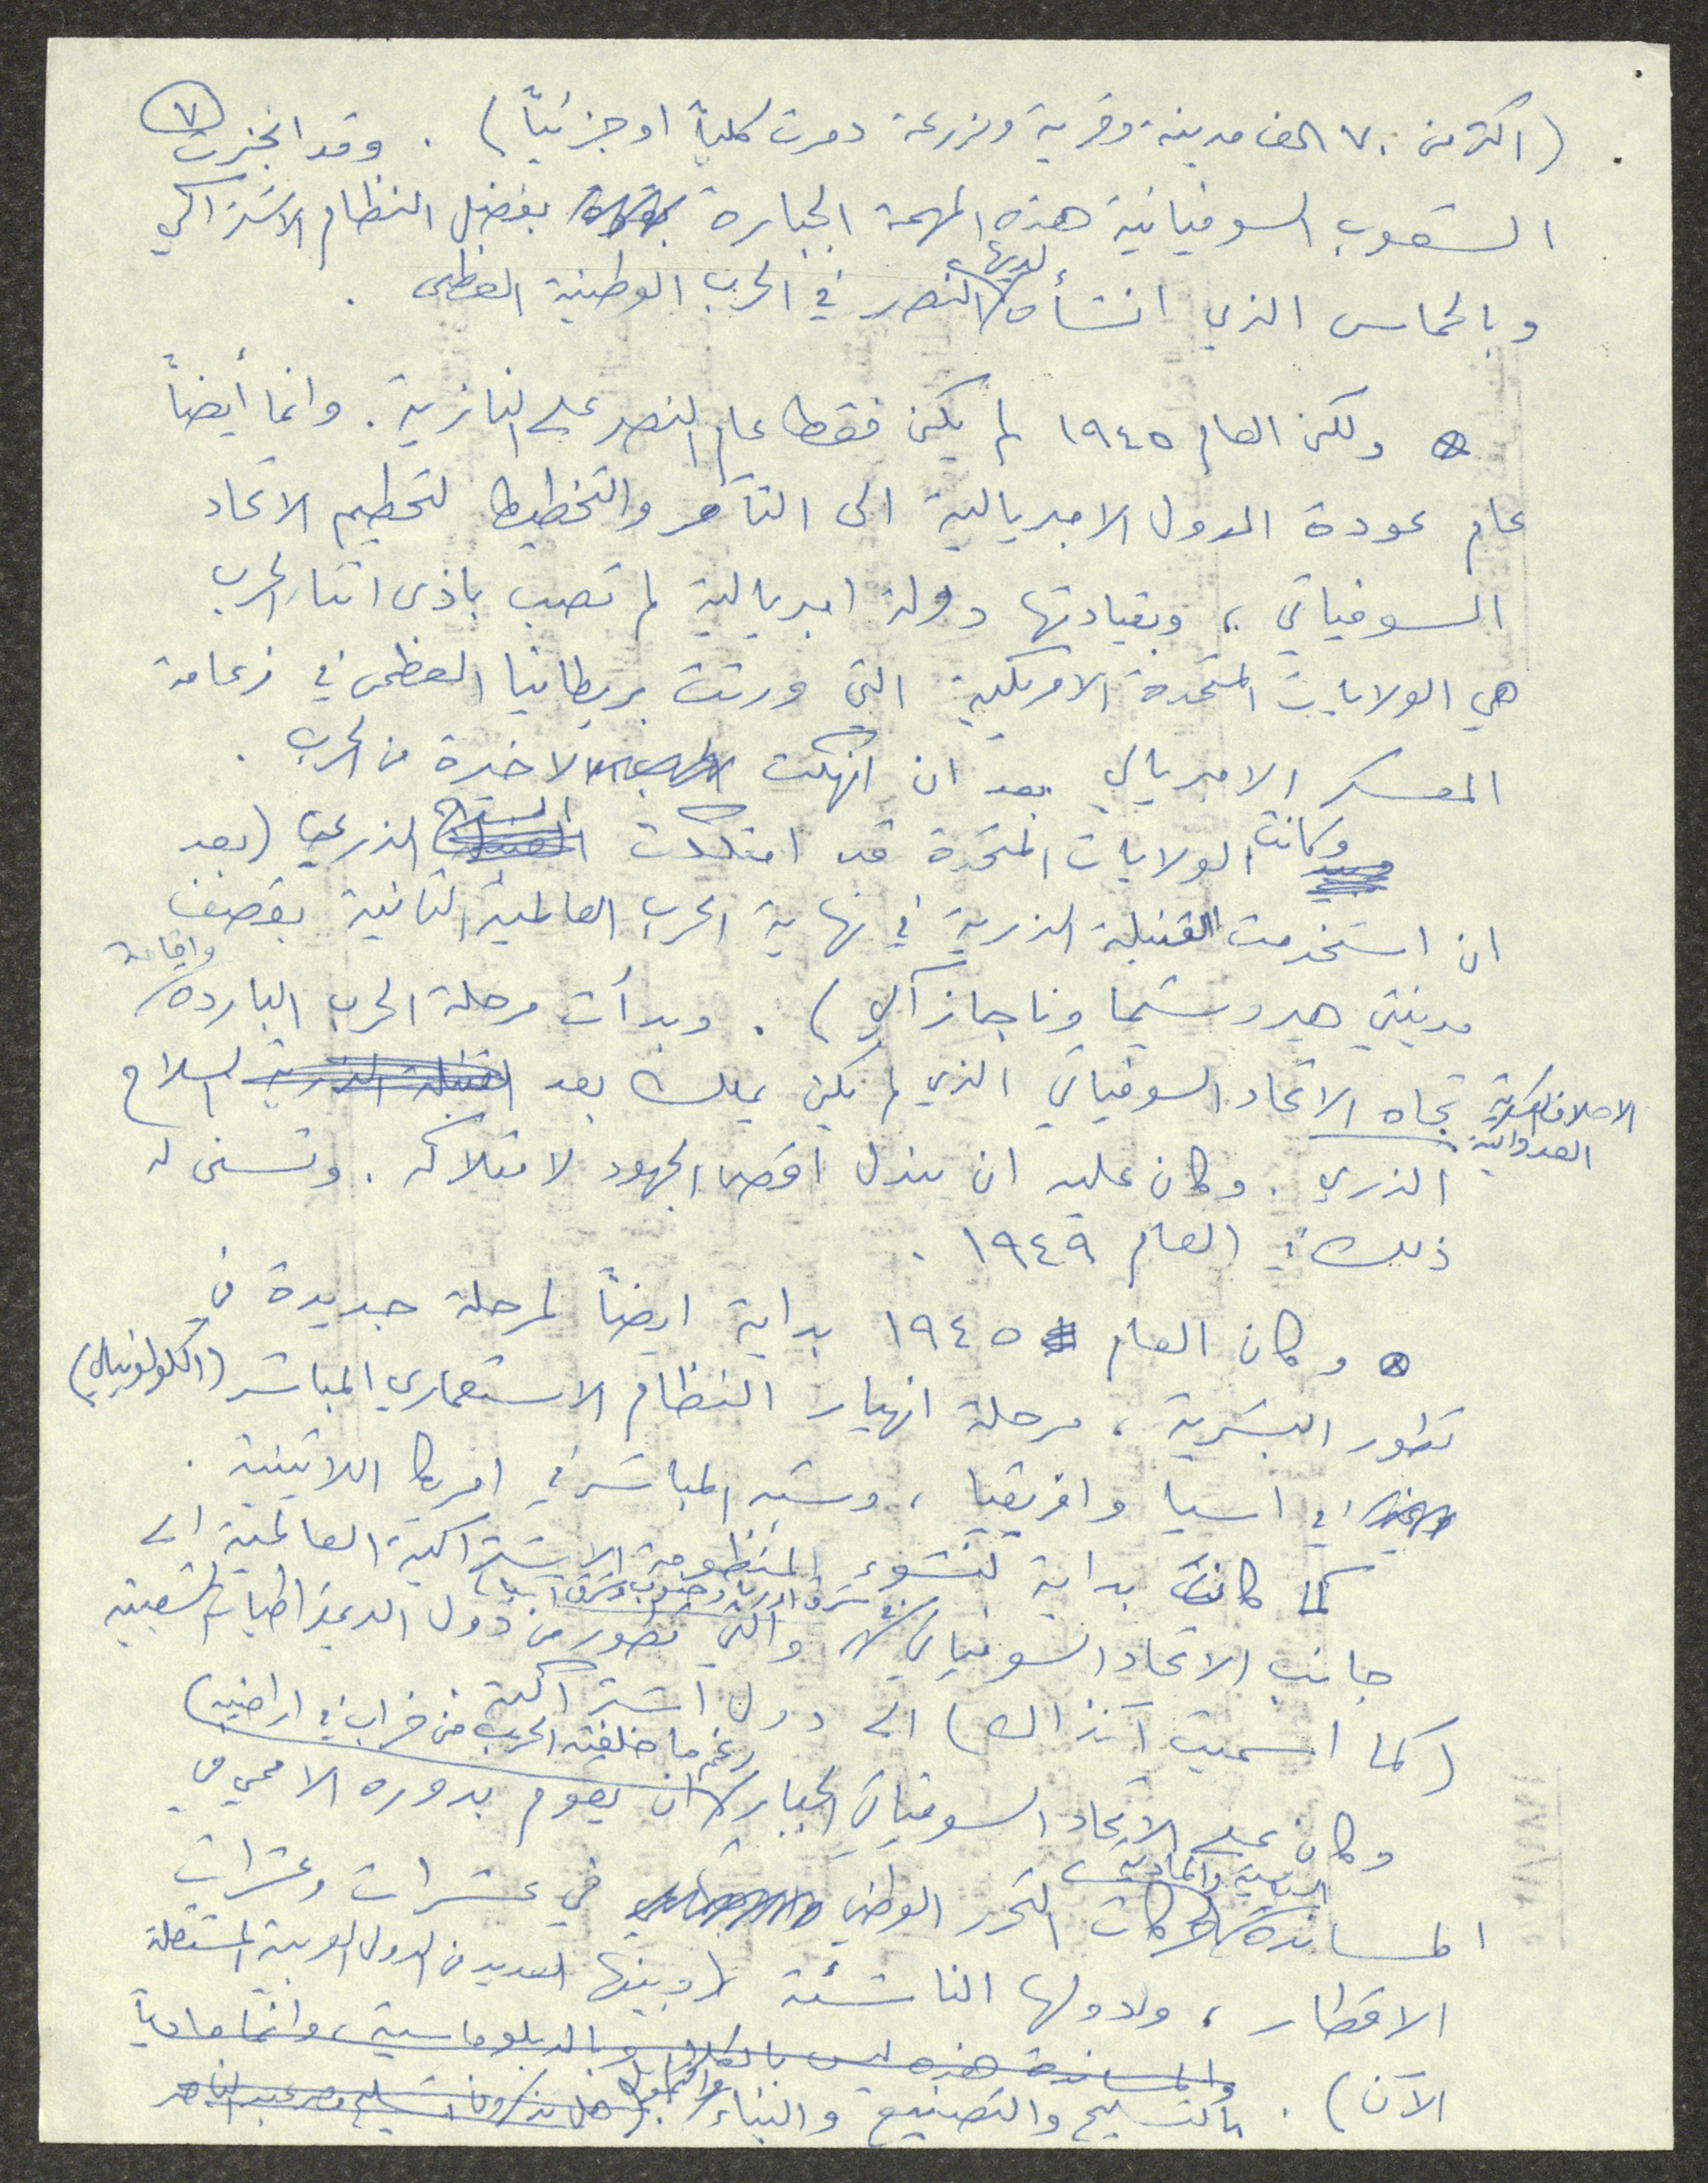 ٧
(اكثر من ٧٠ الف مدينة وقرية ومزرعة دمرت كلياً او جزئياً) . وقد انجزت
الشعوب السوفياتية هذه المهمة الجبارة بفضل النظام الاشتراكي
وبالحماس الذي انشأه لديها النصر في الحرب الوطنية العظمى .
ولكن العام ١٩٤٥ لم يكن فقط عام النصر على النازية . وانما أيضاً
عام عودة الدول الامبريالية الى التآمر والتخطيط لتحطيم الاتحاد
السوفياتي ، وبقيادتها دولة امبريالية لم تصب باذى اثناء الحرب
هي الولايات المتحدة الامريكية التي ورثت بريطانيا العظمى في زعامة
المعسكر الامبريالي بعد ان انهكت الاخيرة من الحرب .
وكانت الولايات المتحدة قد امتلكت السلاح الذري (بعد
ان استخدمت القنبلة الذرية في نهاية الحرب العالمية الثانية بقصف
مدينتي هيروشيما وناجازاكي) . وبدأت مرحلة الحرب الباردة واقامة
الاحلاف العسكرية العدوانية تجاه الاتحاد السوفياتي الذي لم يكن يملك بعد القنبلة الذرية السلاح
الذري . وكان عليه ان يبذل اقصى الجهود لامتلاكه . وتسنى له
ذلك في العام ١٩٤٩ .
وكان العام ١٩٤٥ بداية ايضاً لمرحلة جديدة في
تطور البشرية ، مرحلة انهيار النظام الاستعماري المباشر (الكولونيالي)
في اسيا وافريقيا ، وشبه المباشر في امريكا اللاتينية .
كما كانت بداية لنشوء المنظومة الاشتراكية العالمية الى
جانب الاتحاد السوفياتي في شرق اوربا وجنوب شرق اسيا والتي تطور من دول الديمقراطيات الشعبية
(كما اسميت آنذاك) الى دول اشتراكية
وكان على الاتحاد السوفياتي الجبار رغم ما خلفته الحرب من خراب في اراضيه) ان يقوم بدوره الاممي في
المساندة السياسية والمادية لحركات التحرر الوطني في عشرات وعشرات
الاقطار ، ولدولها الناشئة (وبينها العديد من الدول العربية المستقلة
الآن) . والمساندة هذه ليس بالكلام وبالدبلوماسية ، وانما مادياً
بالتسليح والتصنيع والبناء